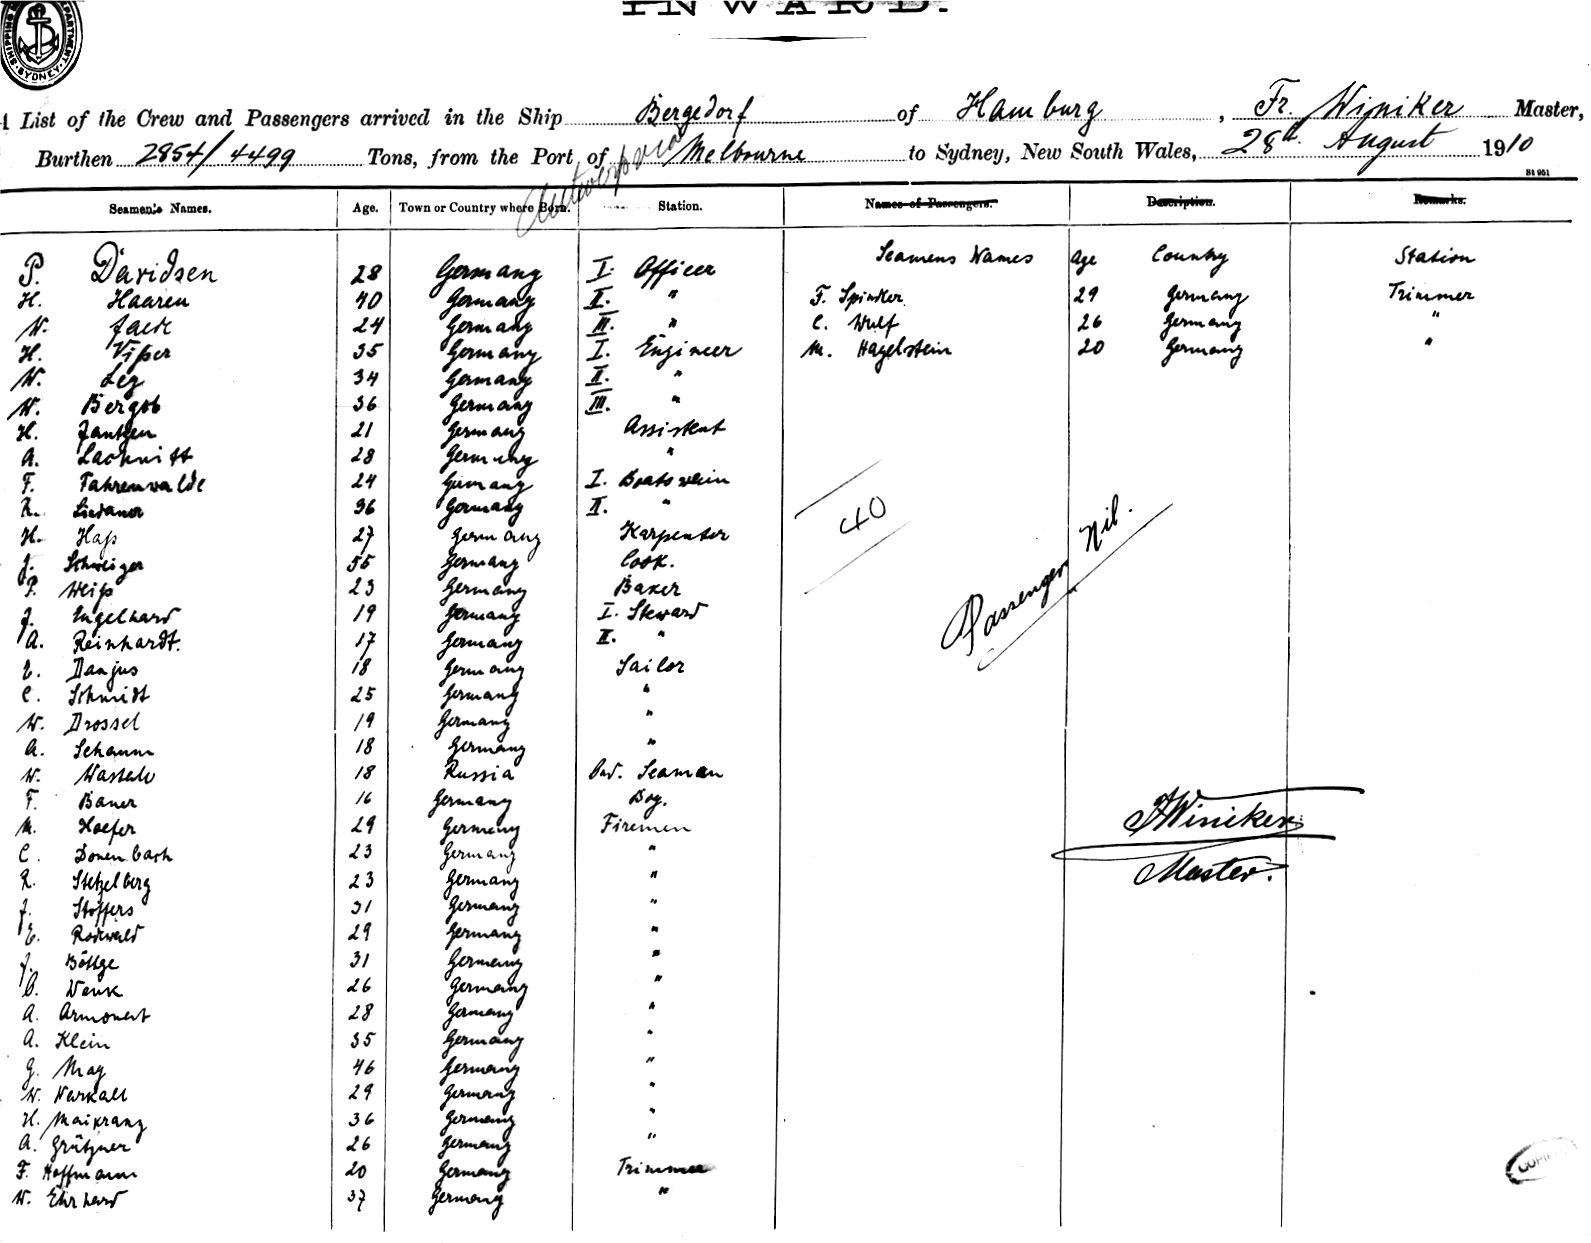 INWARD.
SYDNEY
A List of the Crew and Passengers arrived in the Ship Bergedorf of Hamburg, Fr. Winiker Master,
Burthen 2854/4499 Tons, from the Port of Antwerp via Melbourne to Sydney, New South Wales, 28th August 1910
St 951
Seamen's Names. Age. Town or Country where Born. Station. Names of Passengers. Description. Remarks.
Seamens Names Age Country Station
P. Davidsen 28 Germany I. Officer
H. Haaren 40 Germany II. " F. Spinker 29 Germany Trimmer
W. 24 Germany III. " C. Wulf 26 Germany "
H. 35 Germany I. Engineer M. Hagelstein 20 Germany "
W. Ley 34 Germany II. "
W. Bergob 36 Germany III. "
H. Jantzen 21 Germany Assistent
A. Lachnitt 28 Germany "
F. Fahrenwalde 24 Germany I. Boatswein
R. 36 Germany II. "
H. Haß 27 Germany Karpenter
J. Schweiger 55 Germany Cook.
P. Weiß 23 Germany Baker
J. Engelhard 19 Germany I. Steward
A. Reinhardt. 17 Germany II. "
E. Danjus 18 Germany Sailor
C. Schmidt 25 Germany "
W. Drossel 19 Germany "
A. Schamm 18 Germany "
W. 18 Russia Ord. Seaman
F. Bauer 16 Germany Boy.
M. Hoefer 29 Germany Firemen
C. Donenbach 23 Germany "
R. Stetzelberg 23 Germany "
J. Stoffers 31 Germany "
E. Rodewald 29 Germany "
J. Böttge 31 Germany "
O. Wenk 26 Germany "
A. Armoneit 28 Germany "
A. Klein 35 Germany "
G. May 46 Germany "
W. Narkall 29 Germany "
H. Maikranz 36 Germany "
A. Grützner 26 Germany "
F. Hoffmann 20 Germany Trimmer
W. Ehrhard 37 Germany "
40
Passengers Nil.
Fr Winiker
Master.